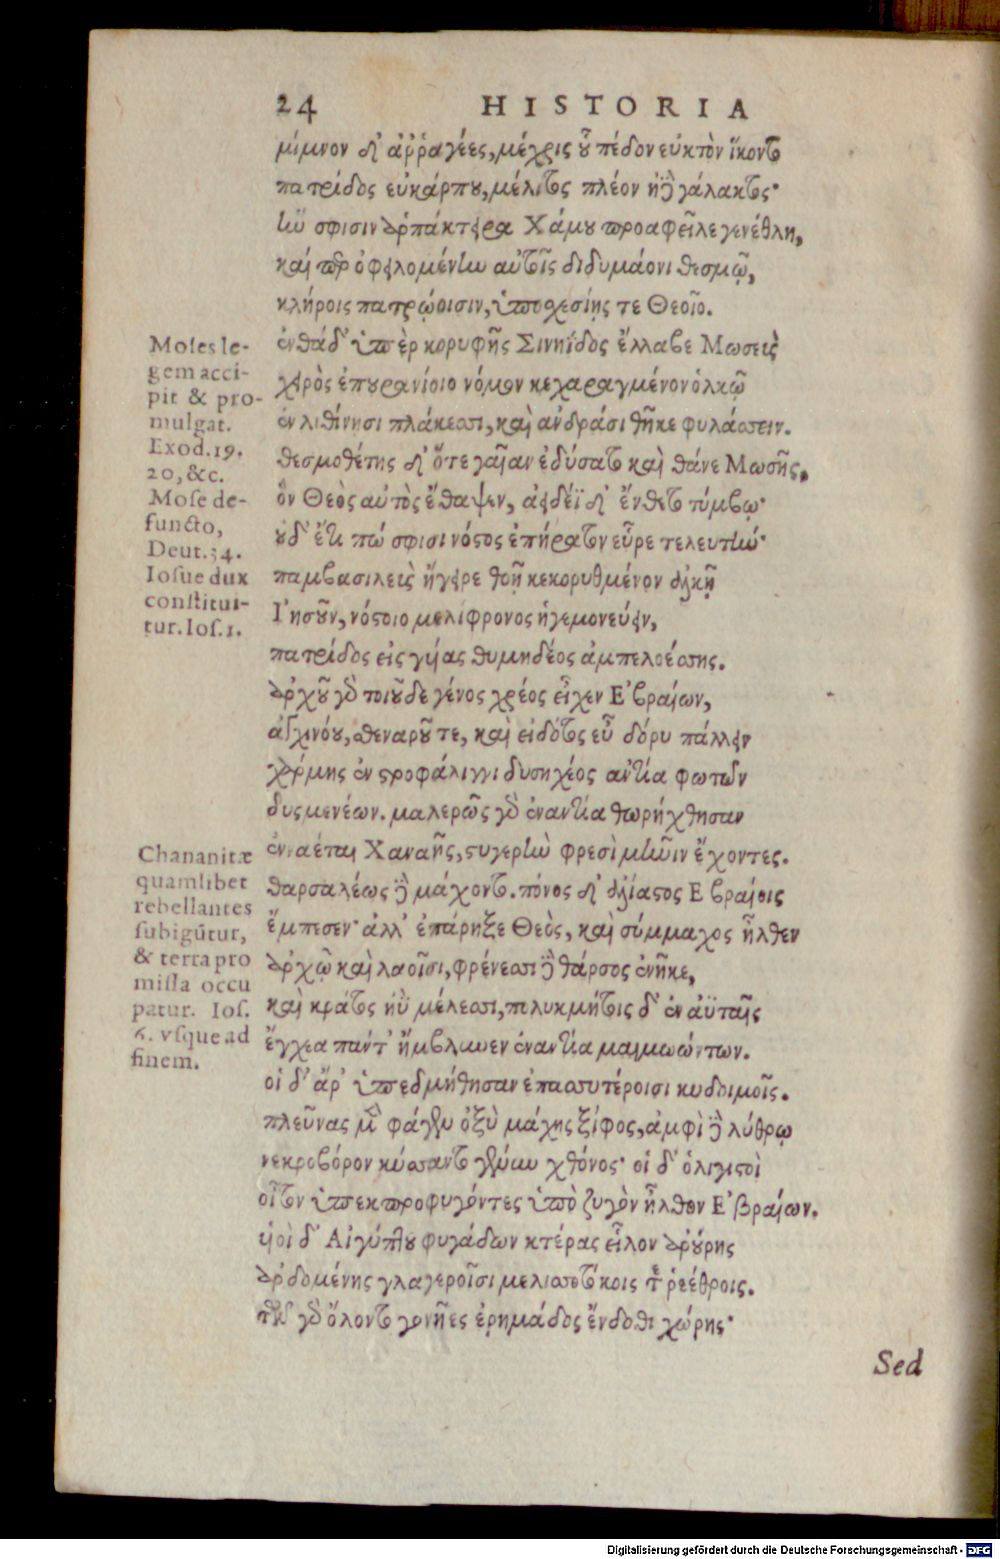 24 HISTORIA
μίμνον δ' ἀῤῥαγέες, μέχρις οὗ πέδον εὐκτὸν ἵκοντο
πατρίδος εὐκάρπου, μέλιτος πλέον ἠδὲ γάλακτος·
ἣν σφισιν ἁρπάκτειρα Χάμου προαφεῖλε γενέθλη,
καί περ ὀφειλομένην αὐτοῖς διδυμάονι θεσμῷ,
κλήροις πατρῴοισιν, ὑποσχεσίῃς τε Θεοῖο.
ἐνθάδ' ὑπὲρ κορυφῆς Σινηΐδος ἔλλαβε Μωσεὺς
χειρὸς ἐπουρανίοιο νόμον κεχαραγμένον ὁλκῷ
ἐν λιθίνησι πλάκεσσι, καὶ ἀνδράσι θῆκε φυλάσσειν.
θεσμοθέτης δ' ὅτε γαῖαν ἐδύσατο καὶ θάνε Μωσῆς,
ὃν Θεὸς αὐτὸς ἔθαψεν, ἀειδέϊ δ' ἔνθετο τύμβῳ·
οὐδ' ἔτι πώ σφισι νόστος ἐπήρατον εὗρε τελευτήν·
παμβασιλεὺς ἤγειρε θοῇ κεκορυθμένον ἀλκῇ
Ἰησοῦν, νόστοιο μελίφρονος ἡγεμονεύειν,
πατρίδος εἰς γύας θυμηδέος ἀμπελοέσσης.
ἀρχοῦ γὰρ τοιοῦδε γένος χρέος εἶχεν Ἑβραίων,
ἀγχινόου, σθεναροῦ τε, καὶ εἰδότος εὖ δόρυ πάλλειν
χάρμης ἐν στροφάλιγγι δυσηχέος ἀντία φωτῶν
δυσμενέων. μαλερῶς γὰρ ἐναντία θωρήχθησαν
ἐνναέται Χαναῆς, στυγερὴν φρεσὶ μῆνιν ἔχοντες.
θαρσαλέως δὲ μάχοντο. πόνος δ' ἀλίαστος Ἑβραίοις
ἔμπεσεν· ἀλλ' ἐπάρηξε Θεὸς, καὶ σύμμαχος ἦλθεν
ἀρχῷ καὶ λαοῖσι, φρένεσσι δὲ θάρσος ἐνῆκε,
καὶ κράτος ἠῢ μέλεσσι, πολυκμήτοις δ' ἐν ἀϋταῖς
ἔγχεα πάντ' ἤμβλυνεν ἐναντία μαιμωώντων.
οἱ δ' ἄρ' ὑπεδμήθησαν ἐπασσυτέροισι κυδοιμοῖς.
πλεῦνας μὲν φάγεν ὀξὺ μάχης ξίφος, ἀμφὶ δὲ λύθρῳ
νεκροβόρον κύσσαντο γένυν χθόνος· οἱ δ' ὀλιγιστοὶ
οἶτον ὑπεκπροφυγόντες ὑπὸ ζυγὸν ἦλθον Ἑβραίων.
υἱοὶ δ' Αἰγύπτου φυγάδων κτέρας εἷλον ἀρούρης
ἀρδομένης γλαγεροῖσι μελισσοτόκοις τε ῥεέθροις.
τῶν γὰρ ὄλοντο γονῆες ἐρημάδος ἔνδοθι χώρης·
Sed
Moses le-
gem acci-
pit & pro-
mulgat.
Exod. 19.
20, &c.
Mose de-
functo,
Deut. 34.
Iosue dux
constitui-
tur. Ios. 1.
Chananitæ
quamlibet
rebellantes
subigūtur,
& terra pro
missa occu
patur. Ios.
6. vsque ad
finem.
Digitalisierung gefördert durch die Deutsche Forschungsgemeinschaft - DFG